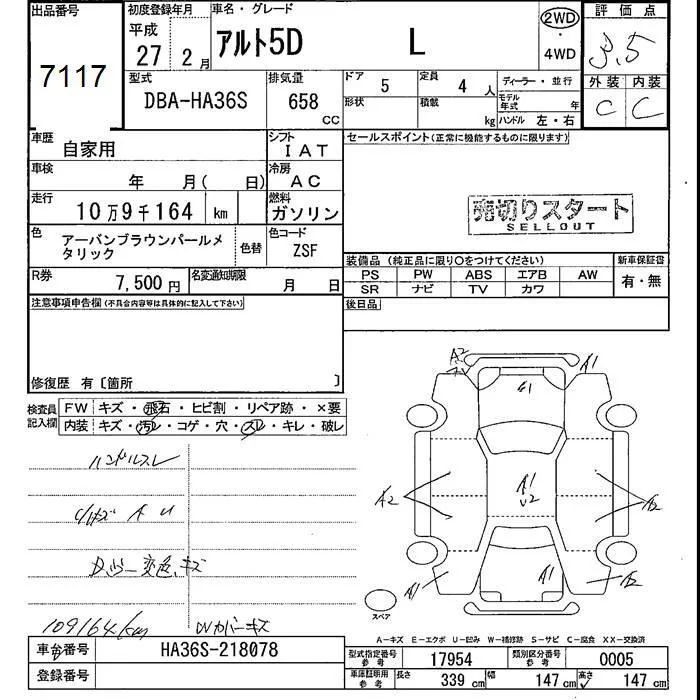 出品番号 初度登録年月 車名・グレード 2WD 評価点
7117 平成 27 2月 アルト5D L ・4WD 3.5
型式 排気量 ドア 定員 ディーラー・並行 外装 内装
DBA-HA36S 658 CC 5 4人 モデル年式 年 C C
形状 積載 kg ハンドル 左・右
車歴 自家用 シフト IAT セールスポイント(正常に機能するものに限ります)
車検 年 月( 日) 冷房 AC
走行 10万9千164 km 燃料 ガソリン 売切りスタート
SELLOUT
色 アーバンブラウンパールメ 色替 色コード
タリック ZSF
装備品(純正品に限り○をつけてください) 新車保証書
R券 7,500円 名変通知期限 月 日 PS PW ABS エアB AW 有・無
SR ナビ TV カワ
注意事項申告欄(不具合内容等は具体的に記入して下さい) 後日品
修復歴 有〔箇所 〕
検査員 FW キズ・飛石・ヒビ割・リペア跡・×要
記入欄 内装 キズ・汚れ・コゲ・穴・スレ・キレ・破レ
A2 A1
G1
ハンドルスレ
A1
A2 U2 A2
変色、キズ
A1 A1 A2
スペア
109164km カバーキズ
A-キズ E-エクボ U-凹み W-補修跡 S-サビ C-腐食 XX-交換済
車台番号 HA36S-218078 型式指定番号 参考 17954 類別区分番号 参考 0005
登録番号 車庫証明用 参考 長さ 339 cm 幅 147 cm 高さ 147 cm